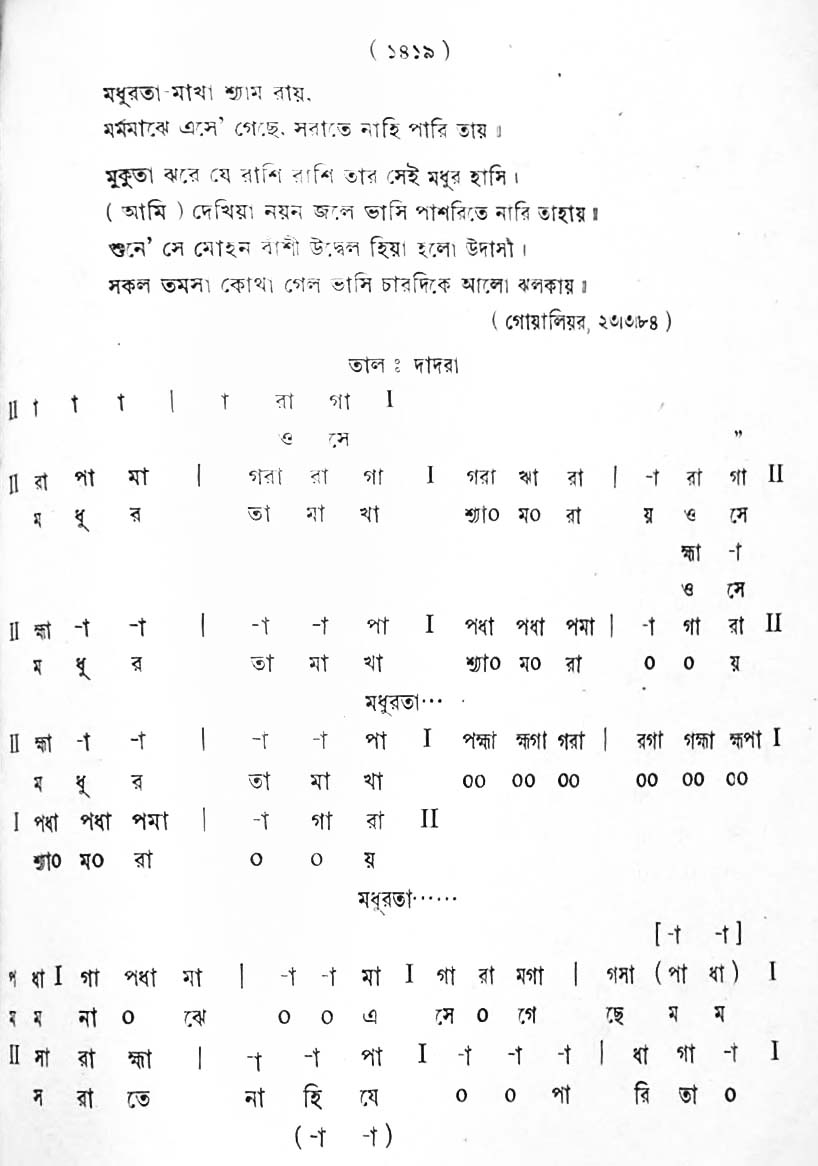 ( ১৪১৯ )
মধুরতা-মাখা শ্যাম রায়,
মর্মমাঝে এসে' গেছে, সরাতে নাহি পারি তায় ॥
মুকুতা ঝরে যে রাশি রাশি তার সেই মধুর হাসি ।
( আমি ) দেখিয়া নয়ন জলে ভাসি পাশরিতে নারি তাহায় ॥
শুনে' সে মোহন বাঁশী উদ্বেল হিয়া হলো উদাসী ।
সকল তমসা কোথা গেল ভাসি চারদিকে আলো ঝলকায় ॥
( গোয়ালিয়র, ২৩।৩।৮৪ )
তাল : দাদরা
II া া া | া রা গা I
ও সে
”
II রা পা মা | গরা রা গা I গরা ঋা রা | -া রা গা II
ম ধু র তা মা খা শ্যা০ ম০ রা য় ও সে
হ্মা -া
ও সে
II হ্মা -া -া | -া -া পা I পধা পধা পমা | -া গা রা II
ম ধু র তা মা খা শ্যা০ ম০ রা ০ ০ য়
মধুরতা···
II হ্মা -া -া | -া -া পা I পহ্মা হ্মগা গরা | রগা গহ্মা হ্মপা I
ম ধু র তা মা খা ০০ ০০ ০০ ০০ ০০ ০০
I পধা পধা পমা | -া গা রা II
শ্যা০ ম০ রা ০ ০ য়
মধুরতা······
[ -া -া ]
প ধা I গা পধা মা | -া -া মা I গা রা মগা | গসা (পা ধা) I
ম ম না ০ ঝে ০ ০ এ সে ০ গে ছে ম ম
II সা রা হ্মা | -া -া পা I -া -া -া | ধা গা -া I
স রা তে না হি যে ০ ০ পা রি তা ০
( -া -া )